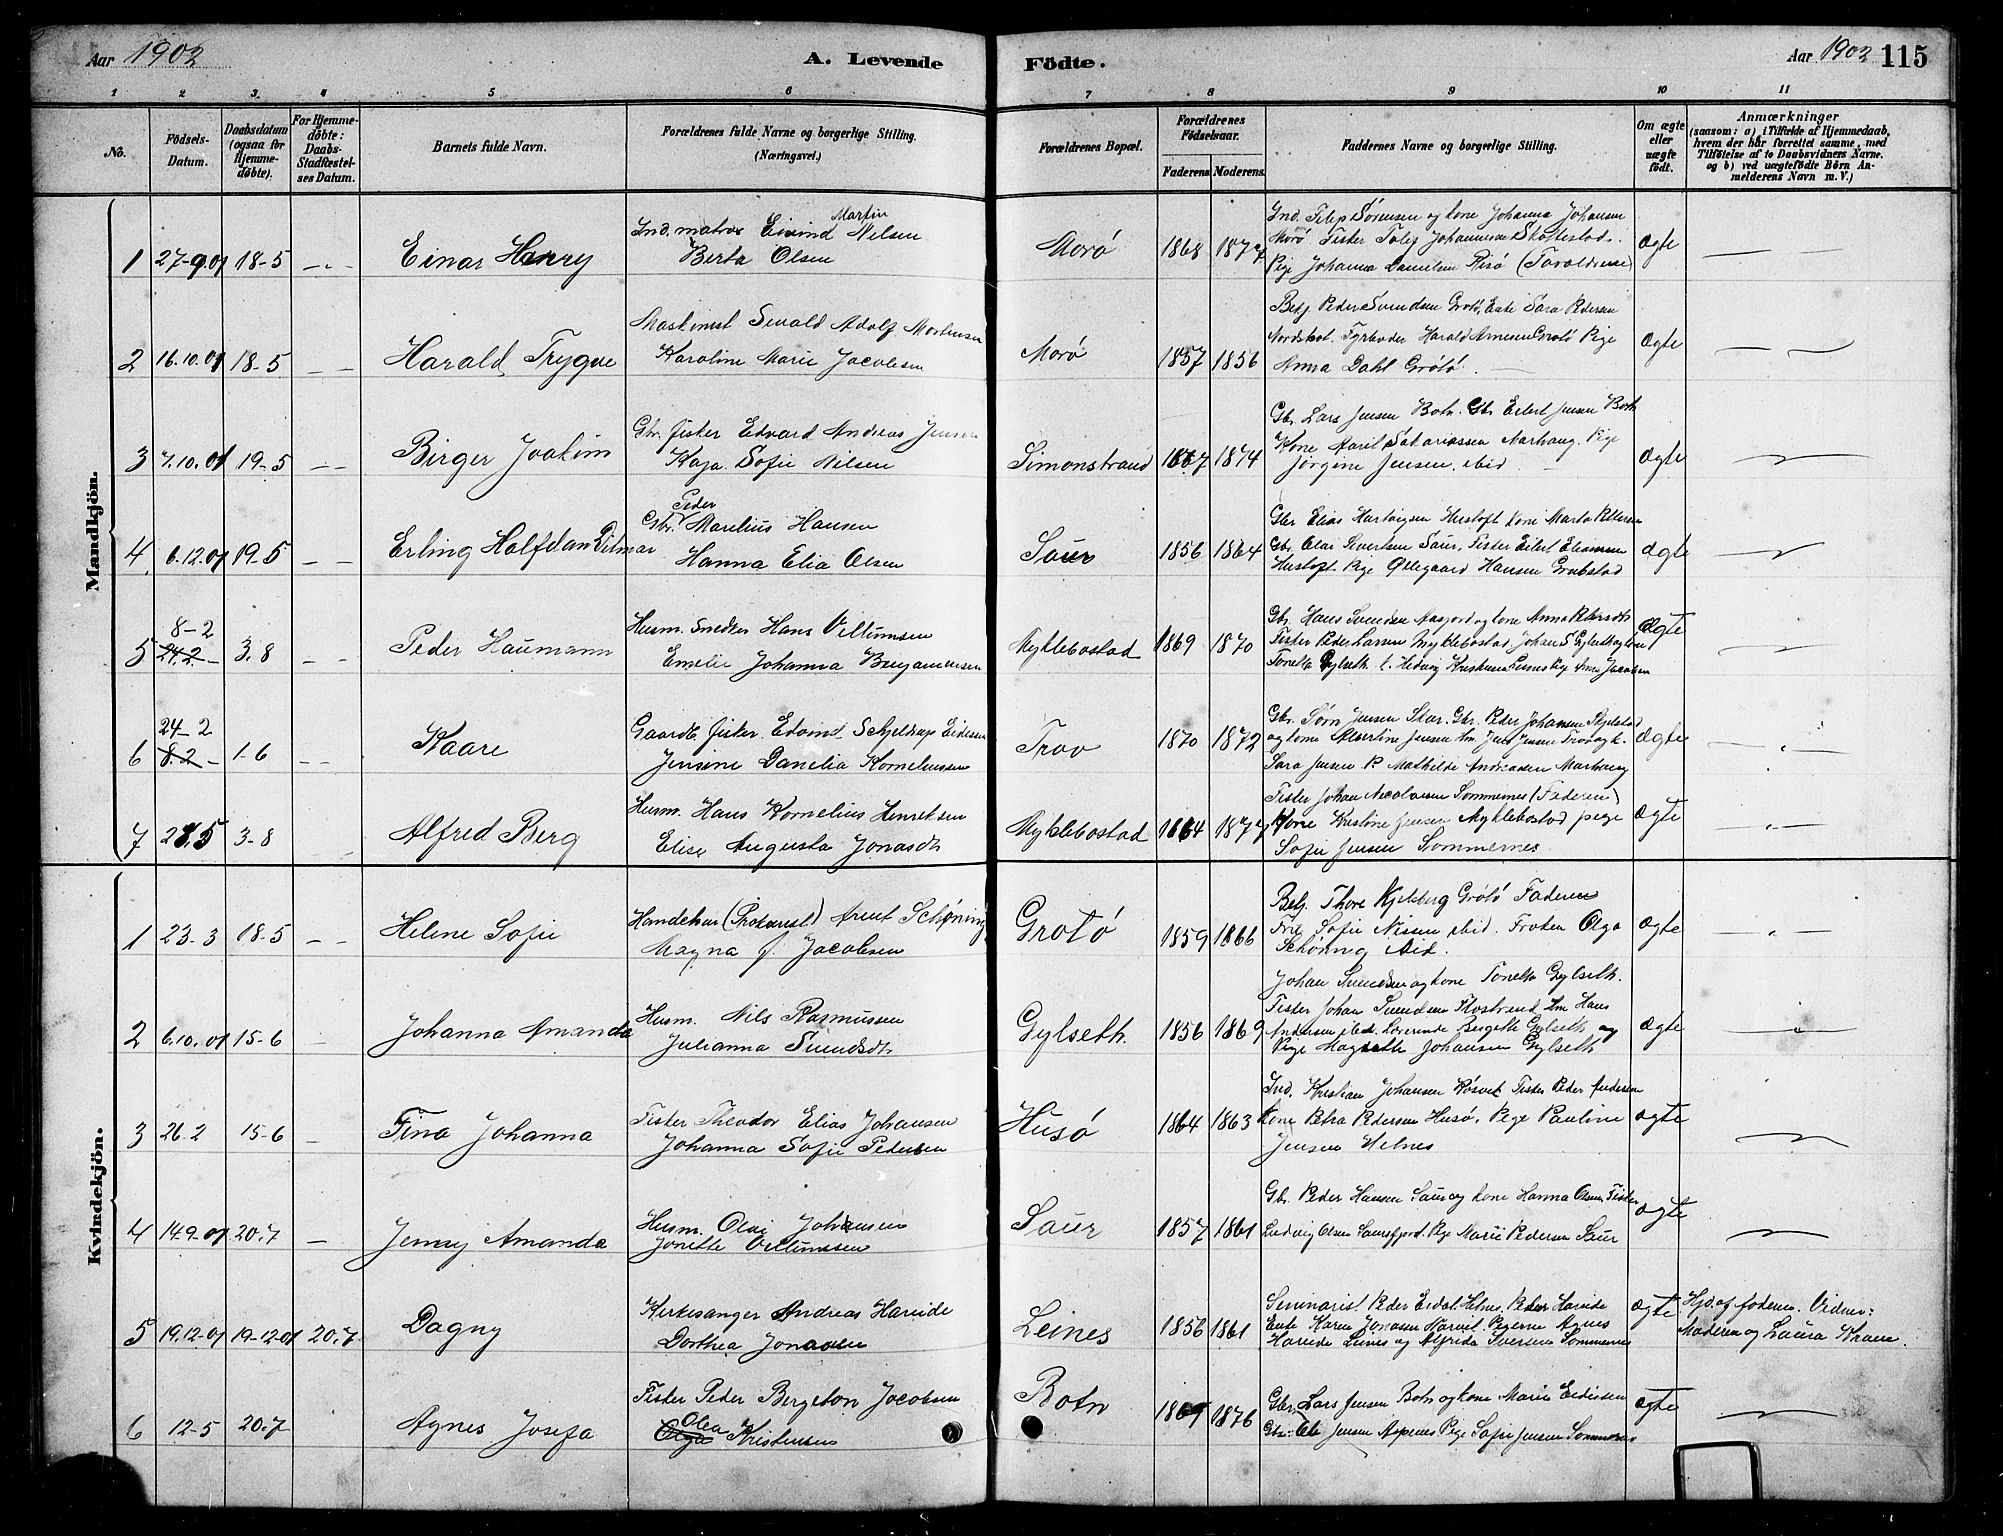 Aar 1902
A. Levende
Födte.
Aar 1902 115
1 2 3 4 5 6 7 8 9 10 11
No.
Födsels-Datum.
Daabsdatum (ogsaa for Hjemme-döbte).
For Hjemme-döbte: Daabs-Stadfæstel-ses Datum.
Barnets fulde Navn.
Forældrenes fulde Navne og borgerlige Stilling. (Næringsvei.)
Forældrenes Bopæl.
Forældrenes Födselsaar.
Faderens Moderens.
Faddernes Navne og borgerlige Stilling.
Om ægte eller uægte födt.
Anmærkninger
(saasom: a) i Tilfælde af Hjemmedaab, hvem der har forrettet samme, med Tilföielse af to Daabsvidners Navne, og b) ved uægtefödte Börn An-melderens Navn m. V.)
Mandkjön.
1 27-9.01 18-5 Einar Henry
Ind. matros Eivind Martin Nilsen
Berta Olsen
Morö 1868 1874
Ind. Filip Sörensen og kone Johanna Johansen
Morö Fisker Tolis Johannesen Skottestad.
Pige Johanna Danielsen Risö
Ægte
2 16.10.01 18-5 Harald Trygve
Maskinist Sevald Adolf Mortensen
Karoline Marie Jacobsen
Morö 1857 1856
Betj. Peder Svendsen Grötö, Enke Sara Pedersen
Nordskot. Fyrböder Harald Arnesen Grötö Pige
Anna Dahl Grötö.
Ægte
3 7.10.01 19-5 Birger Joakim
Gbr. fisker Edvard Andreas Jensen
Kaja Sofie Nilsen
Simonstrand 1867 1874
Gb. Lars Jensen Botn. Gb. Eilert Jensen Botn
Kone Marit Sakariassen Marhaug. Pige
Jörgine Jensen, ibid
Ægte
4. 6.12.01 19-5 Erling Halfdan Hilmar
Gbr. Peder Marelius Hansen
Hanna Elia Olsen
Saur 1856 1864
Gbr Elias Hartvigsen Hustoft kone Marta Pettersen
Gb. Olai Sivertsen Saur, Fisker Eilert Eliassen
Hustoft Pige Ollegaard Hansen Grubstad
Ægte
5 8-2 24.2 3.8 Peder Haumann
Husm. Smeder Hans Villumsen
Emelie Johanna Benjaminsen
Myklebostad 1869 1870
Gb. Hans Svendsen Aasjord og kone Anna Pedersdt
Fisker Peder Larsen Myklebostad Johan S Gylseth og kone
Tonetta Gylseth
Ægte
6 24-2 8.2 1-6 Kaare
Gaardb. fisker Edvind Schjeldrup Eidissen
Jensine Danelia Korneliussen
Trøv 1870 1872
Gb. Sörn Jensen Skar. Gb. Peder Johansen Skjelstad
og kone Albertine Jensen
Sara Jensen P. Mathilde Andreasen Marhaug
Ægte
7 28.5 3-8 Alfred Berg
Husm. Hans Kornelius Henriksen
Elise Augusta Jonasdt
Myklebostad 1864 1877
Fisker Johan Nicolaisen Sommernes (Faderen)
Kone Kristine Jensen Myklebostad pige
Sofie Jensen Sommernes
Ægte
Kvindekjön.
1 23-3 18-5 Helene Sofie
Handelsm (Prokurist) Arnt Schöning
Magna f. Jacobsen
Grötö 1859 1866
Betj. Thore Kjelsberg Grötö Faderen
Frk Sofie Nissen ibid. Fröken Olga
Schöning ibid.
Ægte
2 6.10.01 15-6 Johanna Amanda
Husm. Nils Rasmussen
Julianna Svendsdt
Gylseth. 1856 1869
Johan Svendsen og kone Tonetta Gylseth.
Fisker Johan Svendsen Flostrand Em Hans
Andersen ibid. Lærerinde Bergitte Gylseth og
Pige Magrete Johansen Gylseth
Ægte
3 26.2 15-6 Fina Johanna
Fisker Theodor Elias Johansen
Johanna Sofie Pedersen
Husö 1864 1863
Ind. Kristian Johansen Rösvik Fisker Peder Andersen
Kone Petra Pedersen Husö, Pige Pauline
Jensen Helnes
Ægte
4 14.9-01 20.7 Jenny Amanda
Husm. Olai Johansen
Jonette Villumsen
Saur 1857 1861
Gb. Peder Hansen Saur og kone Hanna Olsen Fisker
Ludvig Olsen Saursfjord. Pige Marie Pedersen Saur
Ægte
5 19.12-01 19-12-01 20.7 Dagny
Kirkesanger Andreas Hareide
Dorthea Jonassen
Leines 1856 1861
Seminarist Peder Eidal Helnes, Peder Hareide
Enke Karen Jonasen Narvik. Pigerne Agnes
Hareide Leines og Alfrida Iversen Sommernes
Ægte
Hjd. af faderen. Vidner:
Moderen og Laura Kraen.
6 12-5 20.7 Agnes Josefa
Fisker Peder Bergeton Jacobsen
Olea Olga Kristensen
Botn 1869 1876
Gbr. Lars Jensen Botn og kone Maria Eidissen
Gbr. Ole Jensen Aspenes Pige Sofie Jensen Sommernes
Ægte